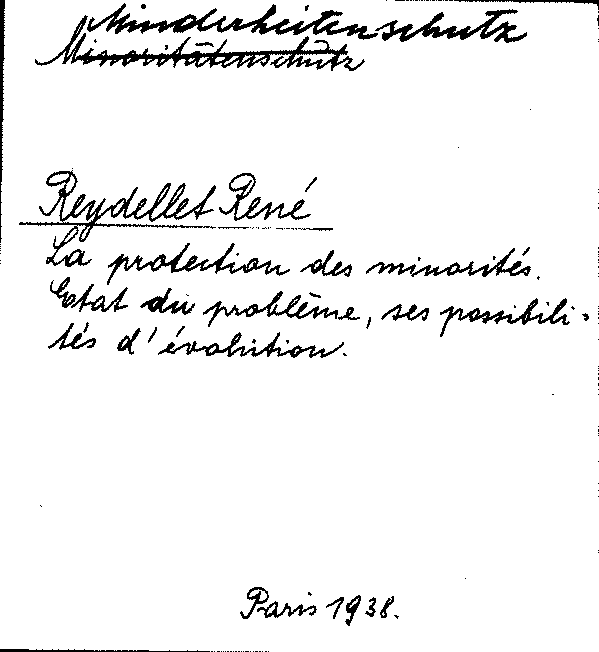 Minderheitenschutz
Minoritätenschutz
Reydellet René
La protection des minorités.
Etat du problème, ses possibili-
tés d'évolution.
Paris 1938.